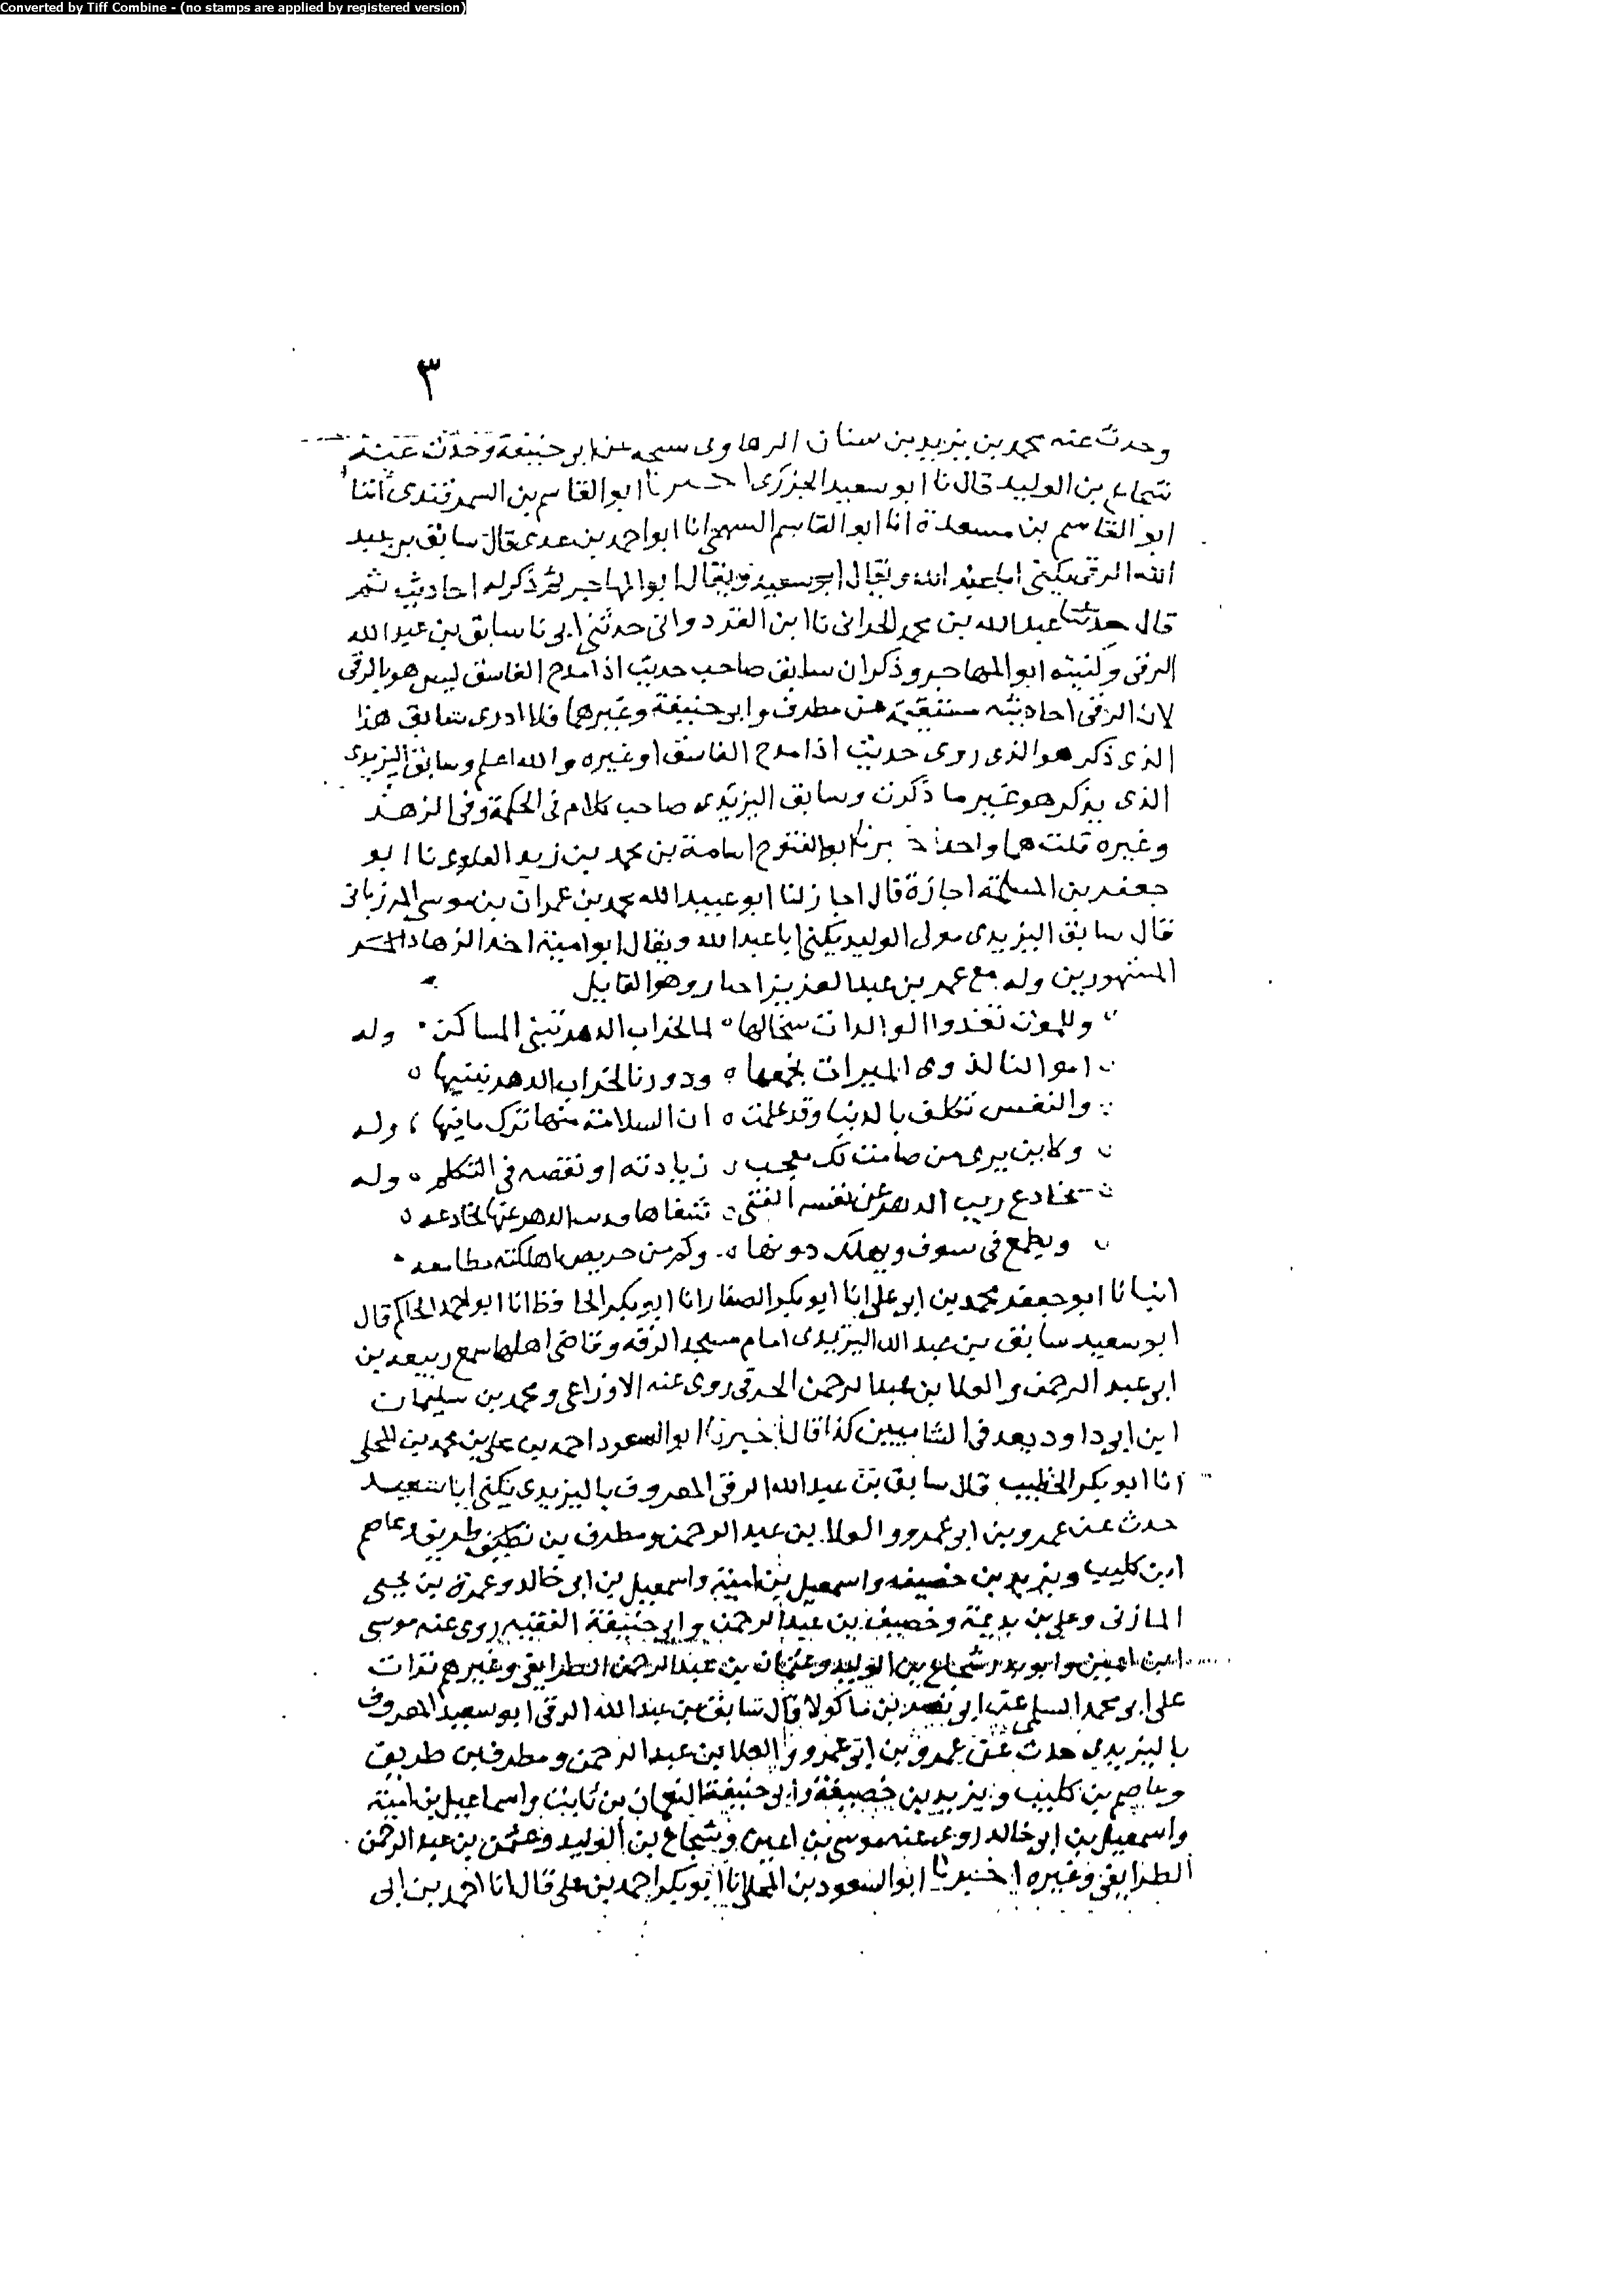 Converted by Tiff Combine - (no stamps are applied by registered version)
٣
وحدث عنه محمد بن يزيد بن سنان الرهاوى عن ابى حنيفة وحدث عنه
شجاع بن الوليد قال نا ابو سعيد الجزرى اخبرنا ابو القاسم بن السمرقندى انبا
ابو القاسم بن مسعدة انا ابو القاسم السهمى انا ابو احمد بن عدى قال سابق بن عبد
الله الرقى يكنى ابا عبد الله ويقال ابو سعيد ويقال ابو المهاجر ثم ذكر له احاديث ثم
قال حدثنا عبد الله بن محمد الحرانى نا ابن الفردوانى حدثنى ابى نا سابق بن عبد الله
الرقى وكنيته ابو المهاجر وذكر ان سابق صاحب حديث اذا مدح الفاسق ليس هو بالرقى
لان الرقى احاديثه مستقيمة عن مطرف وابى حنيفة وغيرهما فلا ادرى سابق هذا
الذى ذكر هو الذى روى حديث اذا مدح الفاسق او غيره والله اعلم وسابق اليزيدى
الذى يذكر هو غير ما ذكرت وسابق اليزيدى صاحب كلام فى الحكمة وفى الزهد
وغيره قلت هما واحد اخبرنا ابو الفتوح اسامة بن محمد بن زيد العلوى نا ابو
جعفر بن المسلمة اجازة قال اجاز لنا ابو عبيد الله محمد بن عمران بن موسى المرزبانى
قال سابق اليزيدى مولى الوليد يكنى ابا عبد الله ويقال ابو امية احد الزهاد
المشهورين وله مع عمر بن عبد العزيز اخبار وهو القايل
وللموت تغذوا الوالدات سخالها لما لخراب الدهر تبنى المساكن وله
اموالنا لذوى الميراث نجمعها ودورنا لخراب الدهر نبنيها
والنفس تكلف بالدنيا وقد علمت ان السلامة منها ترك ما فيها وله
وكاين يرى من صامت لك معجب زيادته او نقصه فى التكلم وله
يخادع ريب الدهر عن نفسه الفتى سفاها وريب الدهر عنها يخادعه
ويطمع فى سوف ويهلك دونها وكم من حريص اهلكته مطامعه
انبانا ابو جعفر محمد بن ابى على انا ابو بكر الصفار انا ابو بكر الحافظ انا ابو احمد الحاكم قال
ابو سعيد سابق بن عبد الله اليزيدى امام مسجد الرقه وقاضى اهلها سمع ربيعه بن
ابى عبد الرحمن والعلا بن عبد الرحمن الحرقى روى عنه الاوزاعى ومحمد بن سليمان
ابن ابى داود يعد فى الشاميين كذا قال اخبرنا ابو السعود احمد بن على بن محمد بن المجلى
انا ابو بكر الخطيب قال سابق بن عبد الله الرقى المعروف باليزيدى يكنى ابا سعيد
حدث عن عمرو بن ابى عمرو والعلا بن عبد الرحمن ومطرف بن طريف وعاصم
ابن كليب ويزيد بن خصيفه واسمعيل بن امية واسمعيل بن ابى خالد وعمرة بن يحيى
المازنى وعلى بن بديمة وخصيف بن عبد الرحمن وابى حنيفة الفقيه روى عنه موسى
ابن اعين وابو بدر شجاع بن الوليد وعثمان بن عبد الرحمن الطرايفى وغيرهم قرات
على ابى محمد السلمى عن ابى نصر بن ماكولا قال سابق بن عبد الله الرقى ابو سعيد المعروف
باليزيدى حدث عن عمرو بن ابى عمرو والعلا بن عبد الرحمن ومطرف بن طريف
وعاصم بن كليب ويزيد بن خصيفة وابى حنيفة النعمان بن ثابت واسماعيل بن امية
واسمعيل بن ابى خالد روى عنه موسى بن اعين وشجاع بن الوليد وعثمن بن عبد الرحمن
الطرايفى وغيره اخبرنا ابو السعود بن المجلى انا ابو بكر احمد بن على قال انا احمد بن ابى